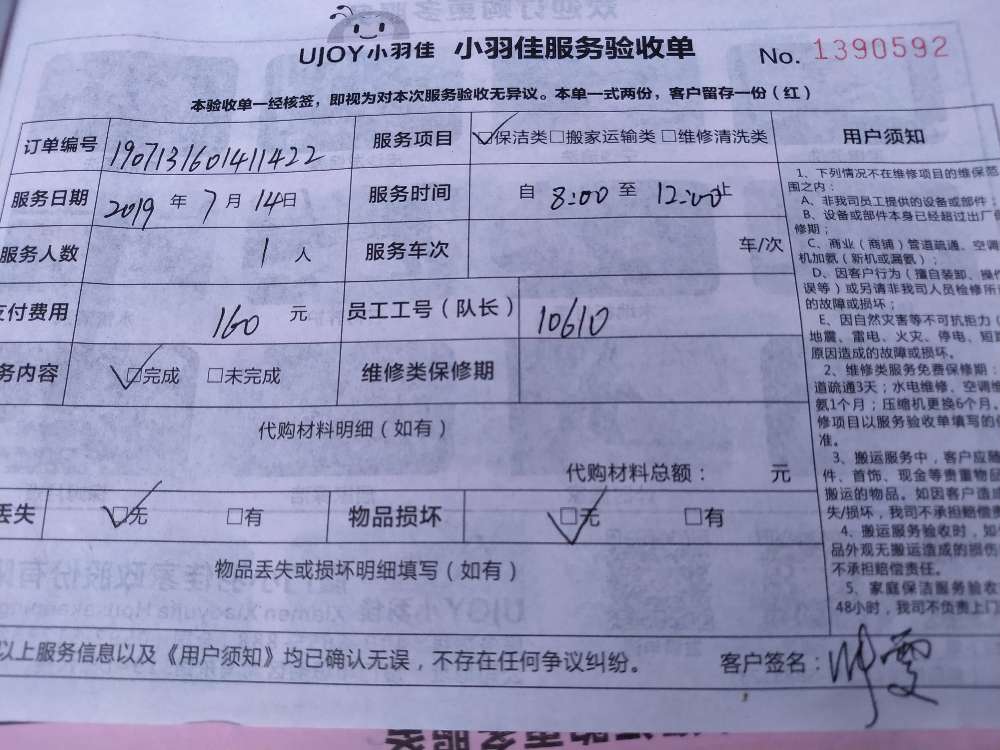 UJOY小羽佳 小羽佳服务验收单 No. 1390592
本验收单一经核签，即视为对本次服务验收无异议。本单一式两份，客户留存一份（红）
订单编号 1907131601411422 服务项目 ☑保洁类□搬家运输类□维修清洗类 用户须知
服务日期 2019 年 7 月 14日 服务时间 自 8:00 至 12:00止
服务人数 1 人 服务车次 车/次
支付费用 160 元 员工工号（队长） 10610
务内容 ☑完成 □未完成 维修类保修期
代购材料明细（如有）
代购材料总额： 元
丢失 ☑无 □有 物品损坏 ☑无 □有
物品丢失或损坏明细填写（如有）
以上服务信息以及《用户须知》均已确认无误，不存在任何争议纠纷。 客户签名：
1、下列情况不在维修项目的维保范
围之内：
A、非我司员工提供的设备或部件；
B、设备或部件本身已经超过出厂保
修期；
C、商业（商铺）管道疏通、空调
机加氨（新机或漏氨）；
D、因客户行为（擅自装卸、操作
误等）或另请非我司人员检修所
的故障或损坏；
E、因自然灾害等不可抗拒力（
地震、雷电、火灾、停电、短路
原因造成的故障或损坏。
2、维修类服务免费保修期：
道疏通3天；水电维修、空调维
氨1个月；压缩机更换6个月。
修项目以服务验收单填写的
准。
3、搬运服务中，客户应随
件、首饰、现金等贵重物品
搬运的物品。如因客户造成
失/损坏，我司不承担赔偿责
4、搬运服务验收时，如
品外观无搬运造成的损伤
不承担赔偿责任。
5、家庭保洁服务验收
48小时，我司不负责上门